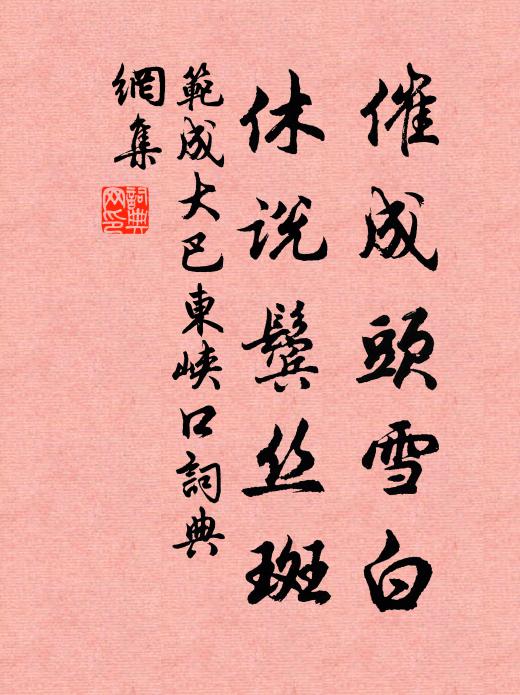 催成頭雪白
休说鬓丝斑
範成大巴東峡口詞典
網集
詞典
网印